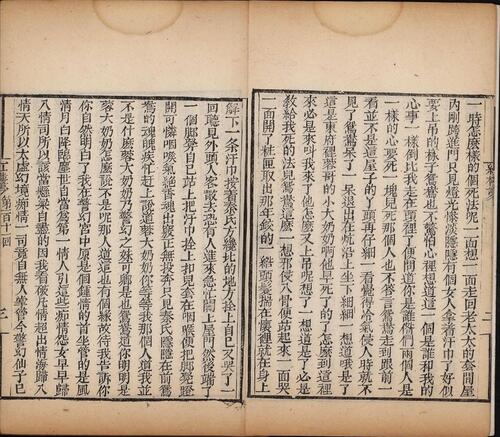 一時怎麼樣的個死法呢一面想一面走回老太太的套間屋
內剛跨進門只見燈光慘淡隱隱有個女人拿着汗巾子好似
要上吊的樣子鴛鴦也不驚怕心裡想道這一個是誰和我的
心事一樣倒比我走在頭裡了便問道你是誰偺們兩個人是
一樣的心要死一塊兒死那個人也不答言鴛鴦走到跟前一
看並不是這屋子的丫頭再仔細一看覺得冷氣侵人時就不
見了鴛鴦呆了一呆退出在炕沿上坐下細細一想道哦是了
這是東府裡的小蓉大奶奶啊他早死了的了怎麼到這裡
來必是來叫我來了他怎麼又上吊呢想了一想道是了必是
教給我死的法兒鴛鴦這麼一想邪侵入骨便站起來一面哭
一面開了粧匣取出那年鉸的一綹頭髮揣在懷裡就在身上
二
解下一條汗巾按着秦氏方纔比的地方拴上自已又哭了一
回聽見外頭人客散去恐有人進來急忙關上屋門然後端了
一個脚凳自已站上把汗巾拴上扣兒套在咽喉便把脚凳蹬
開可憐咽喉氣絕香魂出竅正無投奔只見秦氏隱隱在前鴛
鴦的魂魄疾忙趕上說道蓉大奶奶你等等我那個人道我並
不是什麼蓉大奶奶乃警幻之妹可卿是也鴛鴦道你明明是
蓉大奶奶怎麼說不是呢那人道這也有個緣故待我告訴你
你自然明白了我在警幻宮中原是個鍾情的首坐管的是風
情月白降臨塵世自當為第一情人引這些痴情怨女早早歸
入情司所以該當懸梁自盡的因我看破凡情超出情海歸入
情天所以太虛幻境痴情一司竟自無人掌管今警幻仙子已
紅樓夢 第百十一回
三